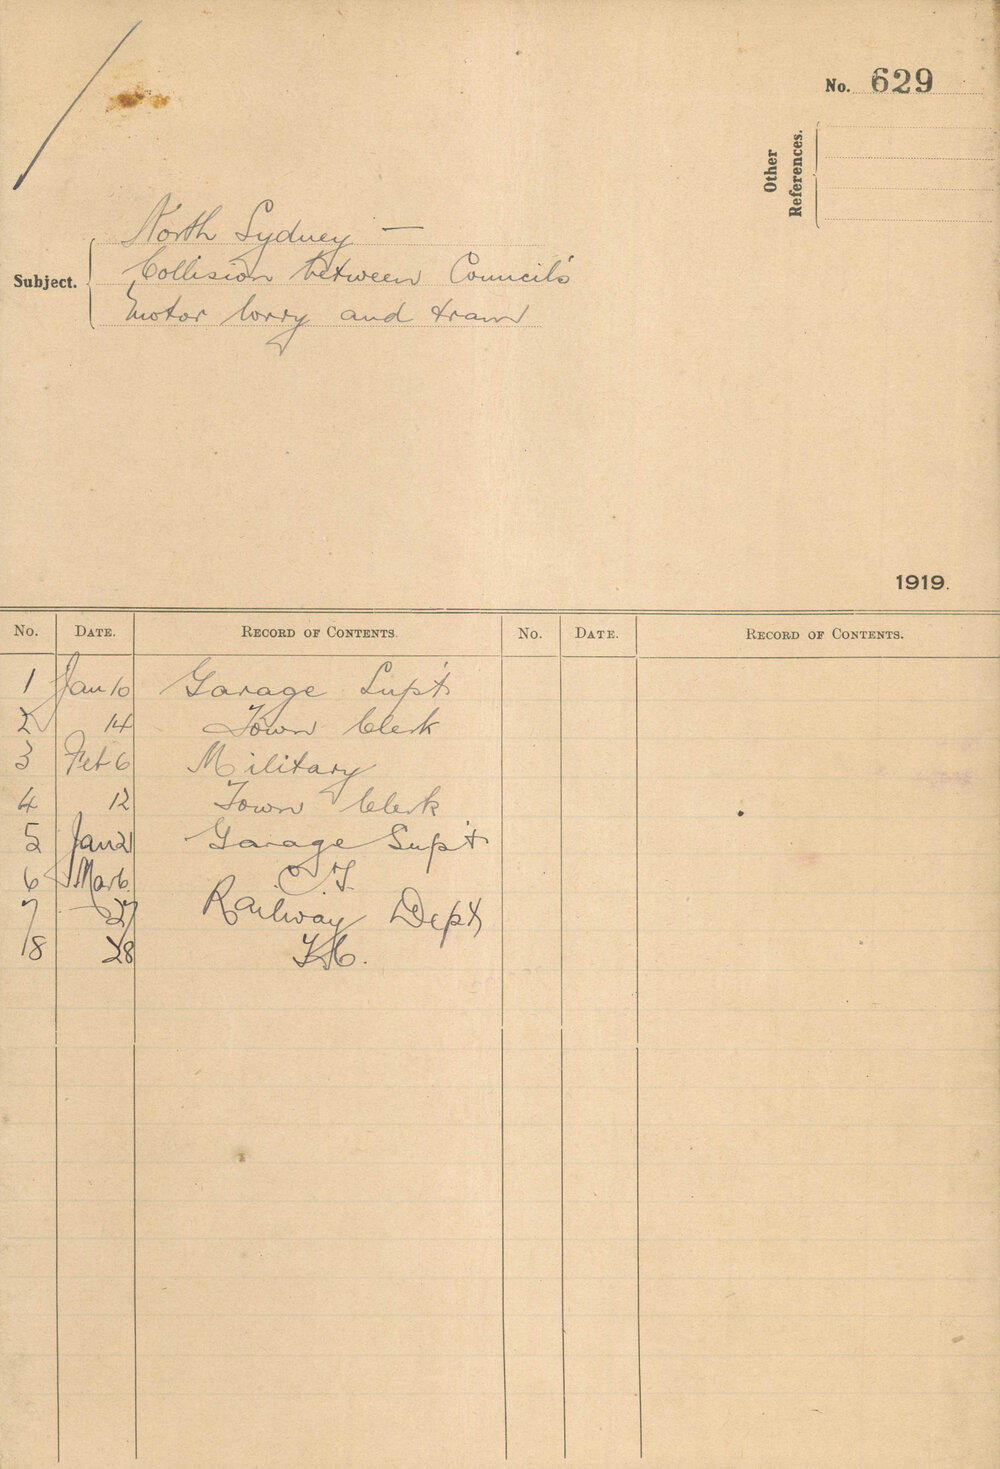 No. 629
Other
References.
North Sydney —
Subject. Collision between Council's
motor lorry and tram
1919.
No. DATE. RECORD OF CONTENTS. No. DATE. RECORD OF CONTENTS.
1 Jan 10 Garage Supt
2 14 Town Clerk
3 Feb 6 Military
4 12 Town Clerk
5 Jan 21 Garage Sup't
6 Mar 6
7 27 Railway Dept
8 28